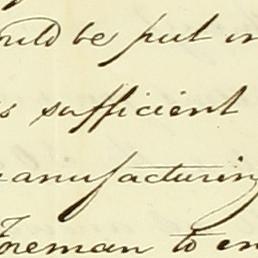 ould be put in
s sufficient
anufacturing
Foreman to en